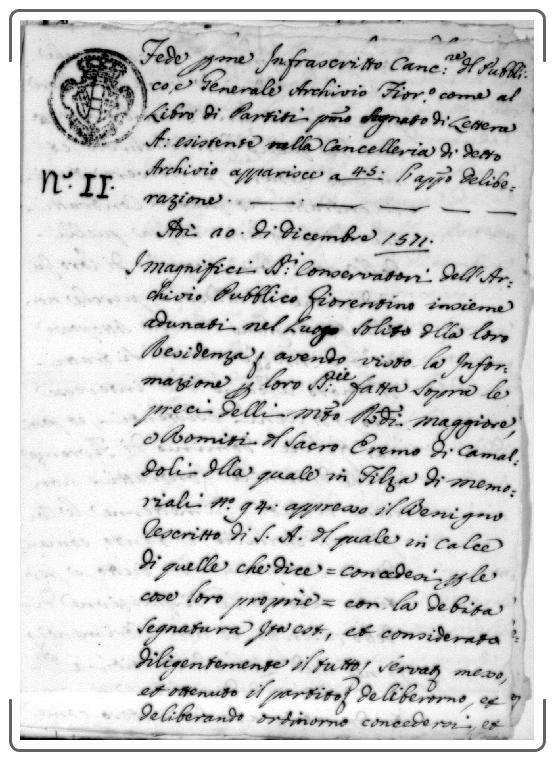 Fede p me Infrascritto Canc:re dl Pubbli:
co, e Generale Archivio Fior:o come al
Libro di Partiti pmo Segnato di Lettera
A: esistente nella Cancelleria di detto
Archivio apparisce a 45: l'appo delibe-
razione.
N.o II.
Adi 20. di dicembre 1571.
I magnifici SS:i Conservatori dell'Ar-
chivio Pubblico fiorentino insieme
adunati nel Luogo Solito dlla loro
Residenza, avendo visto la Infor-
mazione p loro SS:rie fatta sopra le
preci delli mto Rdi maggiore,
e Romiti dl Sacro Eremo di Camal-
doli dlla quale in Filza di memo-
riali no. 94: appresso il Benigno
rescritto di S. A. dl quale in calce
di quelle che dice = concedesi p le
cose loro proprie = con la debita
segnatura Ita est, et considerato
diligentemente il tutto, servat
et ottenuto il partito deliberorno, et
deliberando ordinorno concedersi, et